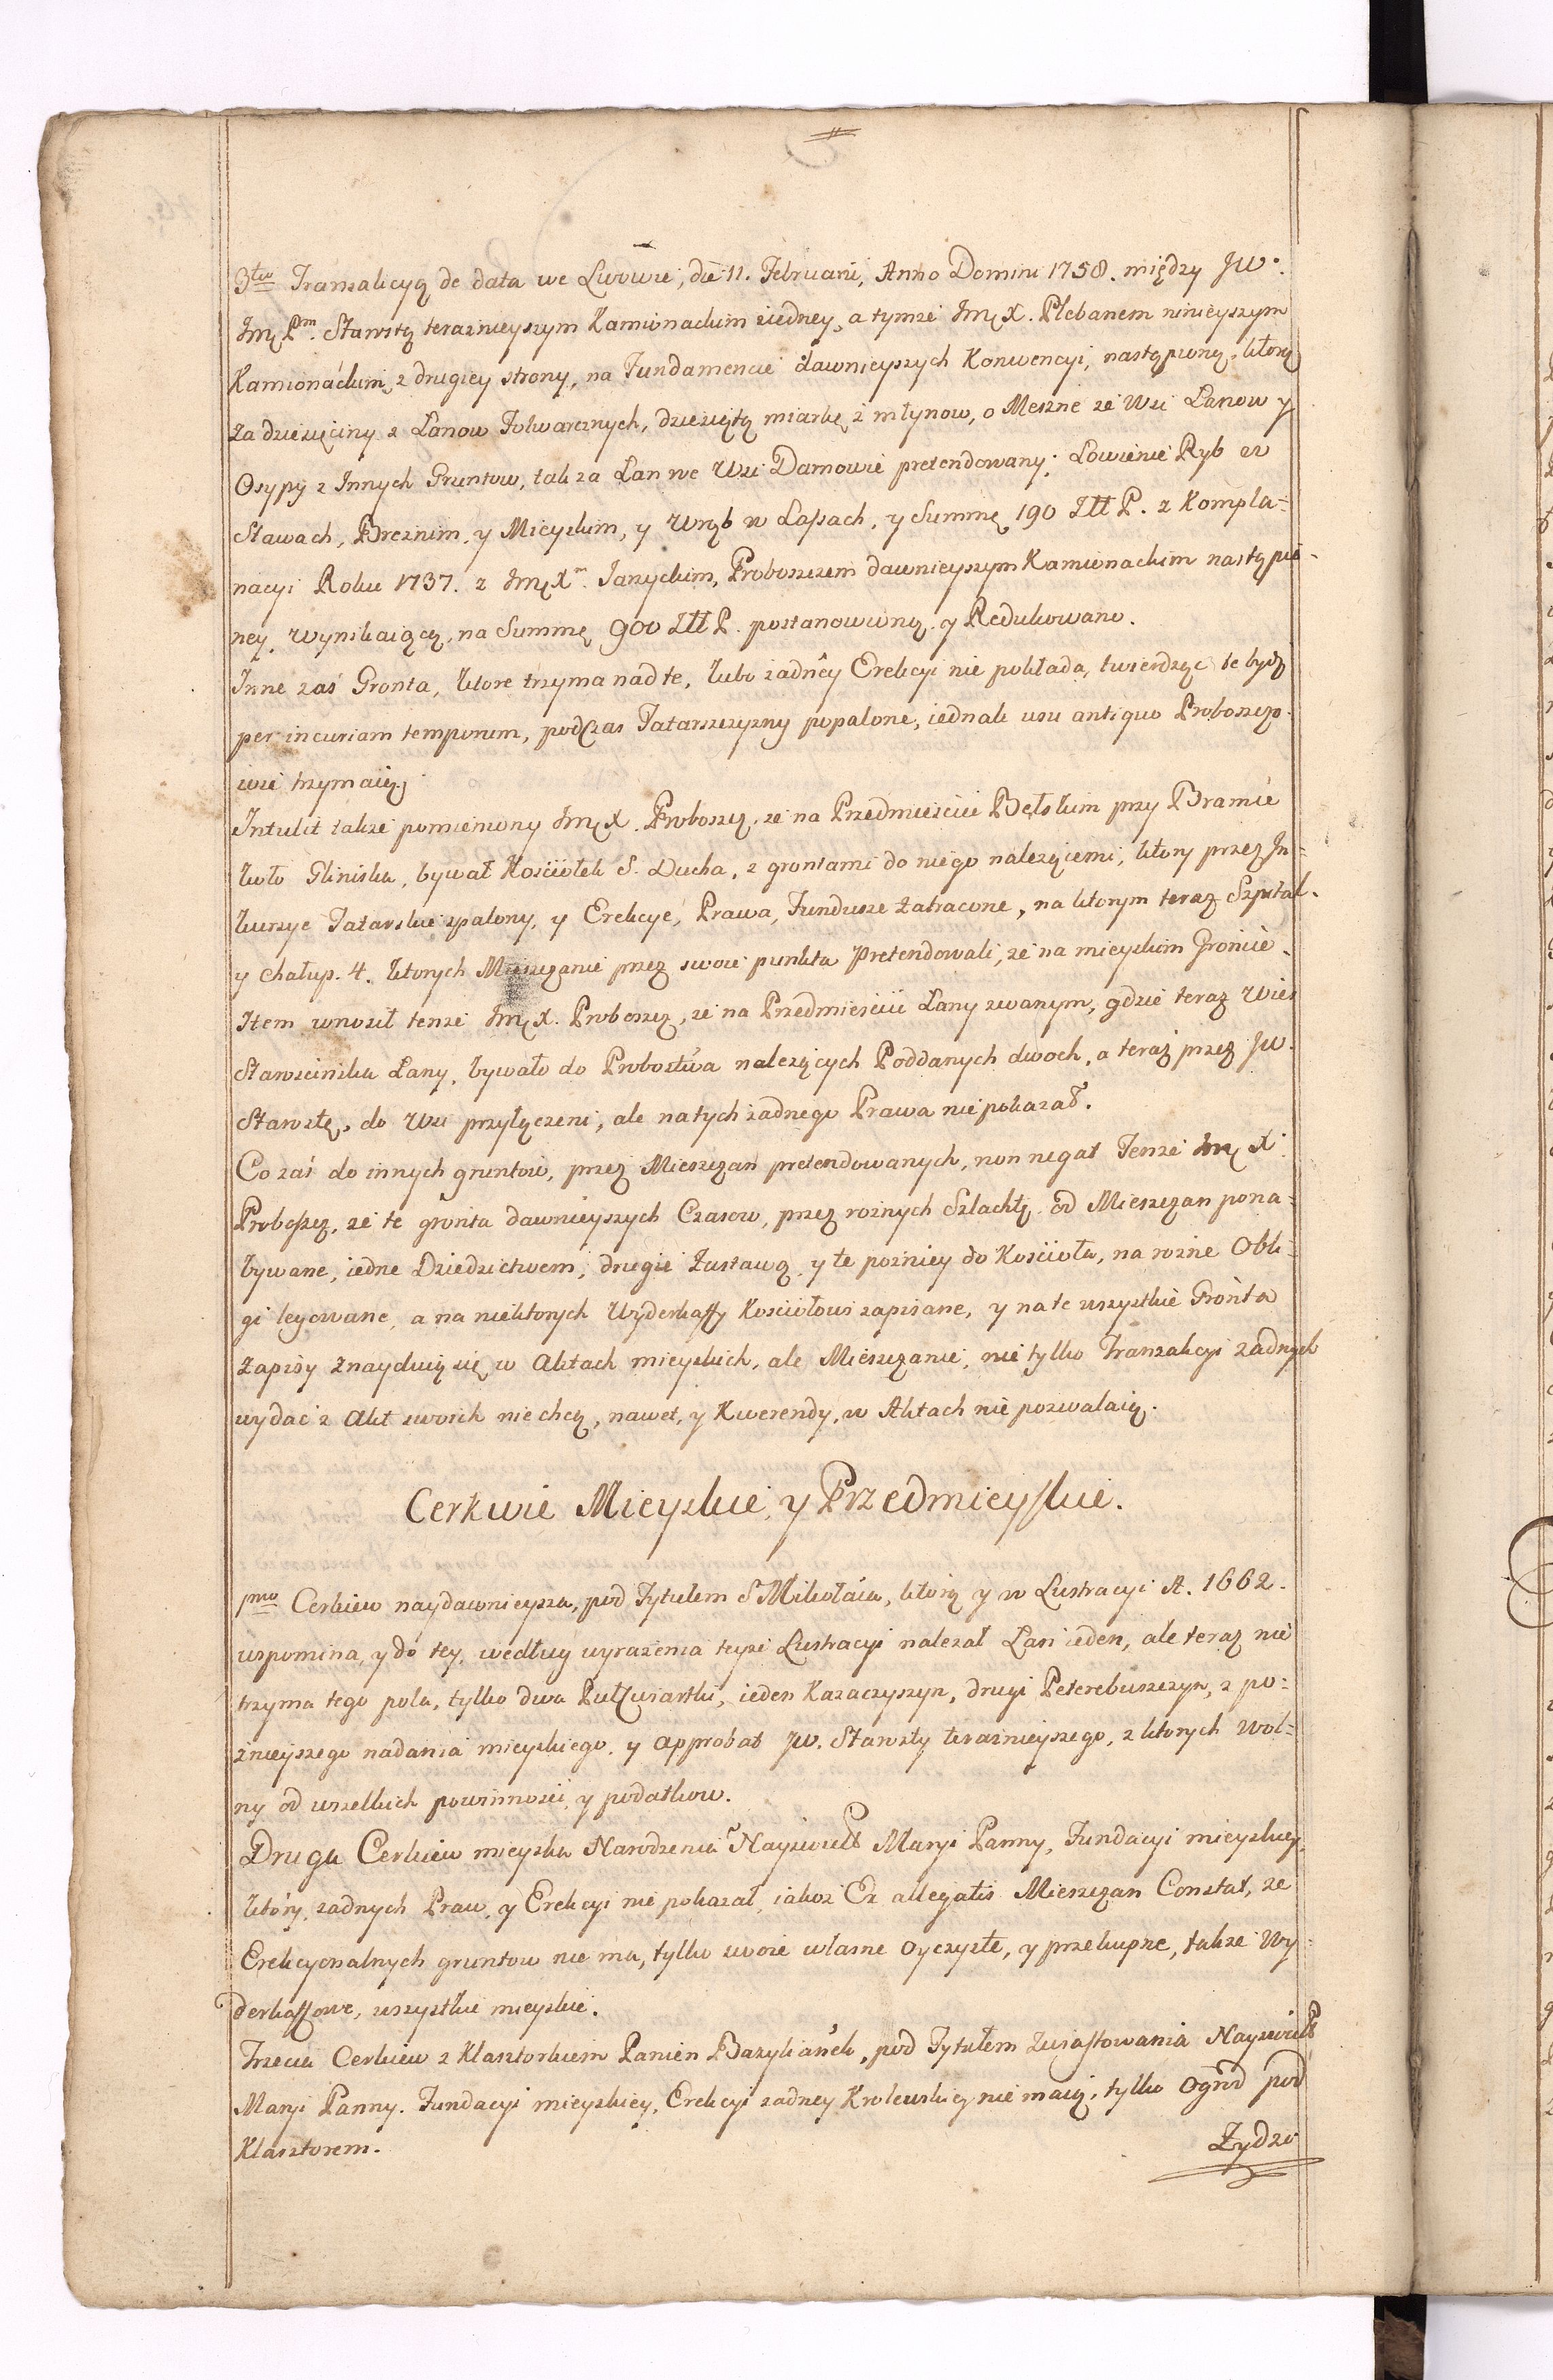 3tio Tranzakcyą de data we Lwowie, die 11. Februarii, Anno Domini 1758. między JW.
Jmę Pm. Starostą teraznieyszym Kamionackim z iedney, a tymze Jmę X. Plebanem ninieyszym
Kamionackim, z drugiey strony, na Fundamencie dawnieyszych Konwencyi, nastąpioną, ktorą
za dziesięciny z Łanow Folwarcznych, dziesiątą miarkę z młynow, o Meszne ze Wsi Łanow y
Osypy z Innych Gruntow, tak za Łan we Wsi Damowie pretendowany, Łowienie Ryb w
Stawach, Breznim, y Mieyskim, y Wrąb w Lasach, y Summę 190 Złł P. z Kompla-
nacyi Roku 1737. z Jmę Xm. Janyckim, Proboszczem dawnieyszym Kamionackim nastąpio-
ney, wynikaiącą, na Summę 900 Złł P. postanowiono, y Redukowano.
Inne zaś Gronta, ktore trzyma nad te, lubo zadney Erekcyi nie pokłada, twierdząc te bydź
per incuriam temporum, podczas Tatarszczyzny popalone, iednak usu antiquo Proboszczo-
wie trzymaią.
Intulit także pomieniony Jmę X. Proboszcz, ze na Przedmieściu Bełskim przy Bramie
koło Gliniska, bywał Kościołek S. Ducha, z grontami do niego nalezącemi, ktory przez In-
kursye Tatarskie spalony, y Erekcye, Prawa, Fundusze zatracone, na ktorym teraz Szpital
y chałup. 4. ktorych Mieszczanie przez swoie punkta pretendowali, ze na mieyskim Groncie.
Item wnosił tenze Jmę X. Proboszcz, ze na Przedmieściu Łany zwanym, gdzie teraz Wieś
Starościńska Łany, bywało do Probostwa nalezących Poddanych dwoch, a teraz przez JW.
Starostę, do Wsi przyłączeni, ale na tych zadnego Prawa nie pokazał.
Co zaś do innych gruntow, przez Mieszczan pretendowanych, non negat Tenze Jmę X.
Proboszcz, ze te gronta dawnieyszych Czasow, przez roznych Szlachtę od Mieszczan pona-
bywane, iedne Dziedzictwem, drugie Zastawą, y te pozniey do Kościoła, na rozne Obli-
gi legowane, a na niektorych Wyderkaffy Kościołowi zapisane, y na te wszystkie Gronta
Zapisy znayduią się w Aktach mieyskich, ale Mieszczanie, nie tylko Tranzakcyi zadnych
wydać z Akt swoich nie chcą, nawet, y Kwerendy, w Aktach nie pozwalaią.
Cerkwie Mieyskie, y Przedmieyskie.
pmo Cerkiew naydawnieysza, pod Tytułem S Mikołaia, ktorą y w Lustracyi A. 1662.
wspomina, y do tey, według wyrazenia teyze Lustracyi nalezał Łan ieden, ale teraz nie
trzyma tego pola, tylko dwa Pułćwiartki, ieden Kazaczyszyn, drugi Peterebuszczyn, z po-
znieyszego nadania mieyskiego, y approbat JW. Starosty teraznieyszego, z ktorych wol-
ny od wszelkich powinności, y podatkow.
Druga Cerkiew mieyska Narodzenia Nayświętt Maryi Panny, Fundacyi mieyskiey,
ktory, zadnych Praw, y Erekcyi nie pokazał, iakoz Ex allegatis Mieszczan Constat, ze
Erekcyonalnych gruntow nie ma, tylko swoie własne oyczyste, y przekupne, także Wy-
derkaffowe, wszystkie mieyskie.
Trzecia Cerkiew z Klasztorkiem Panien Bazylianek, pod Tytułem Zwiastowania Nayświętt
Maryi Panny. Fundacyi mieyskiey, Erekcyi zadney Krolewskiey nie maią, tylko Ogrod pod
Klasztorem.
Żydzi